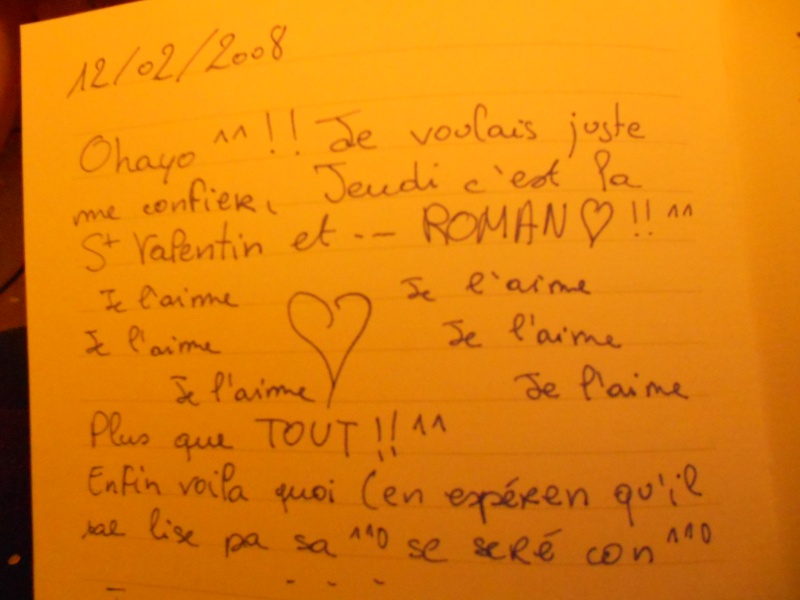 12/02/2008
Ohayo ^^ !! Je voulais juste
me confier, Jeudi c'est la
St Valentin et ... ROMAN ♡ !! ^^
Je l'aime Je l'aime
Je l'aime Je l'aime
Je l'aime Je l'aime
Plus que TOUT !! ^^
Enfin voila quoi (en espéren qu'il
lise pa sa ^^0 se seré con ^^0